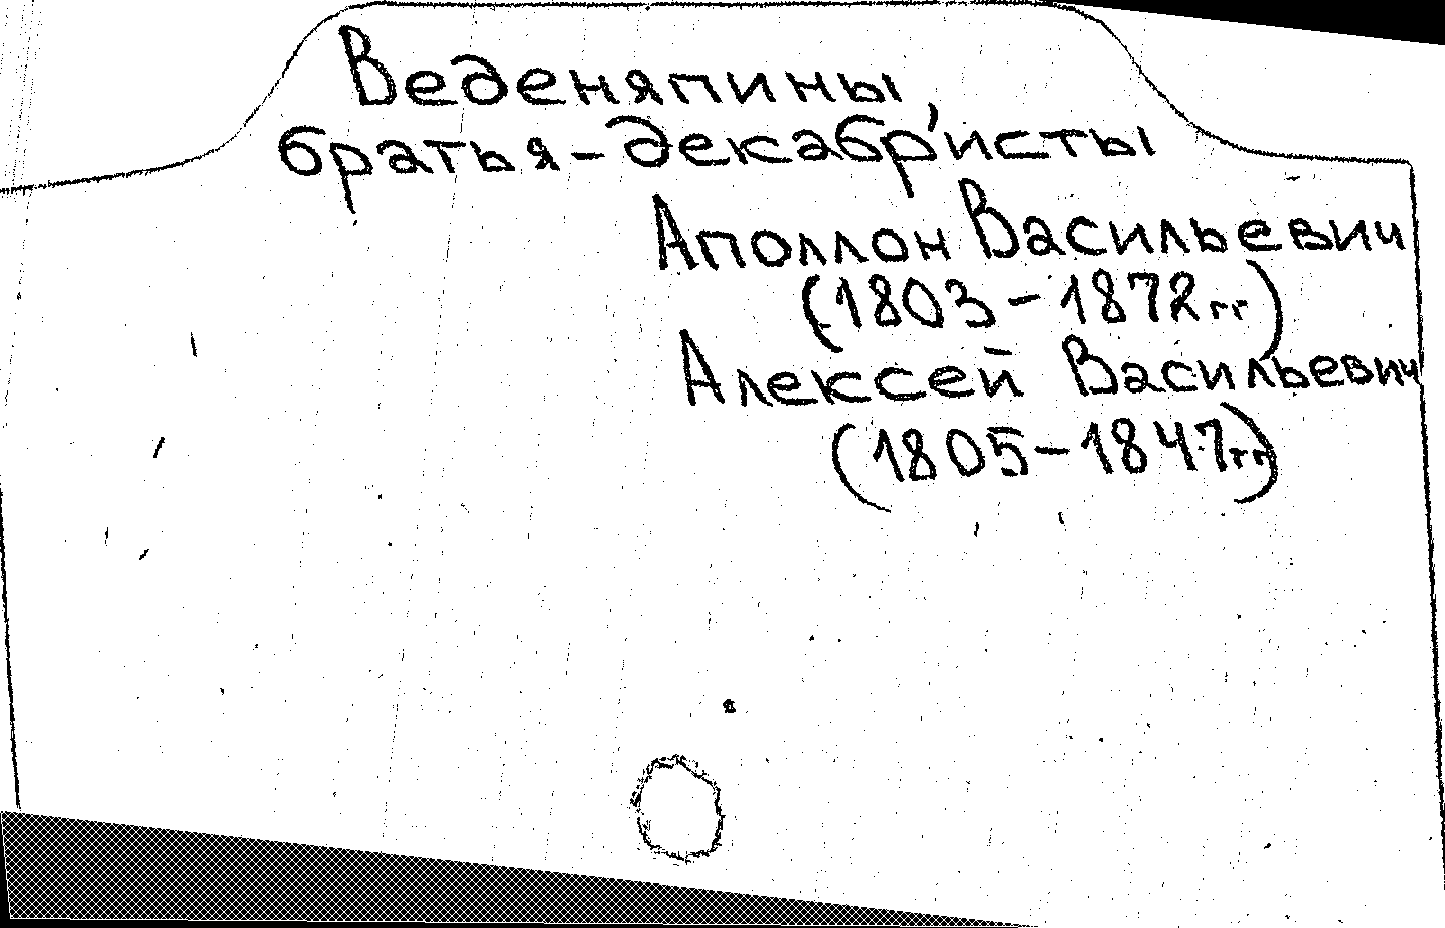 Веденяпины,
братья-декабристы
Аполлон Васильевич
(1803-1872гг)
Алексей Васильевич
(1805-1847гг)